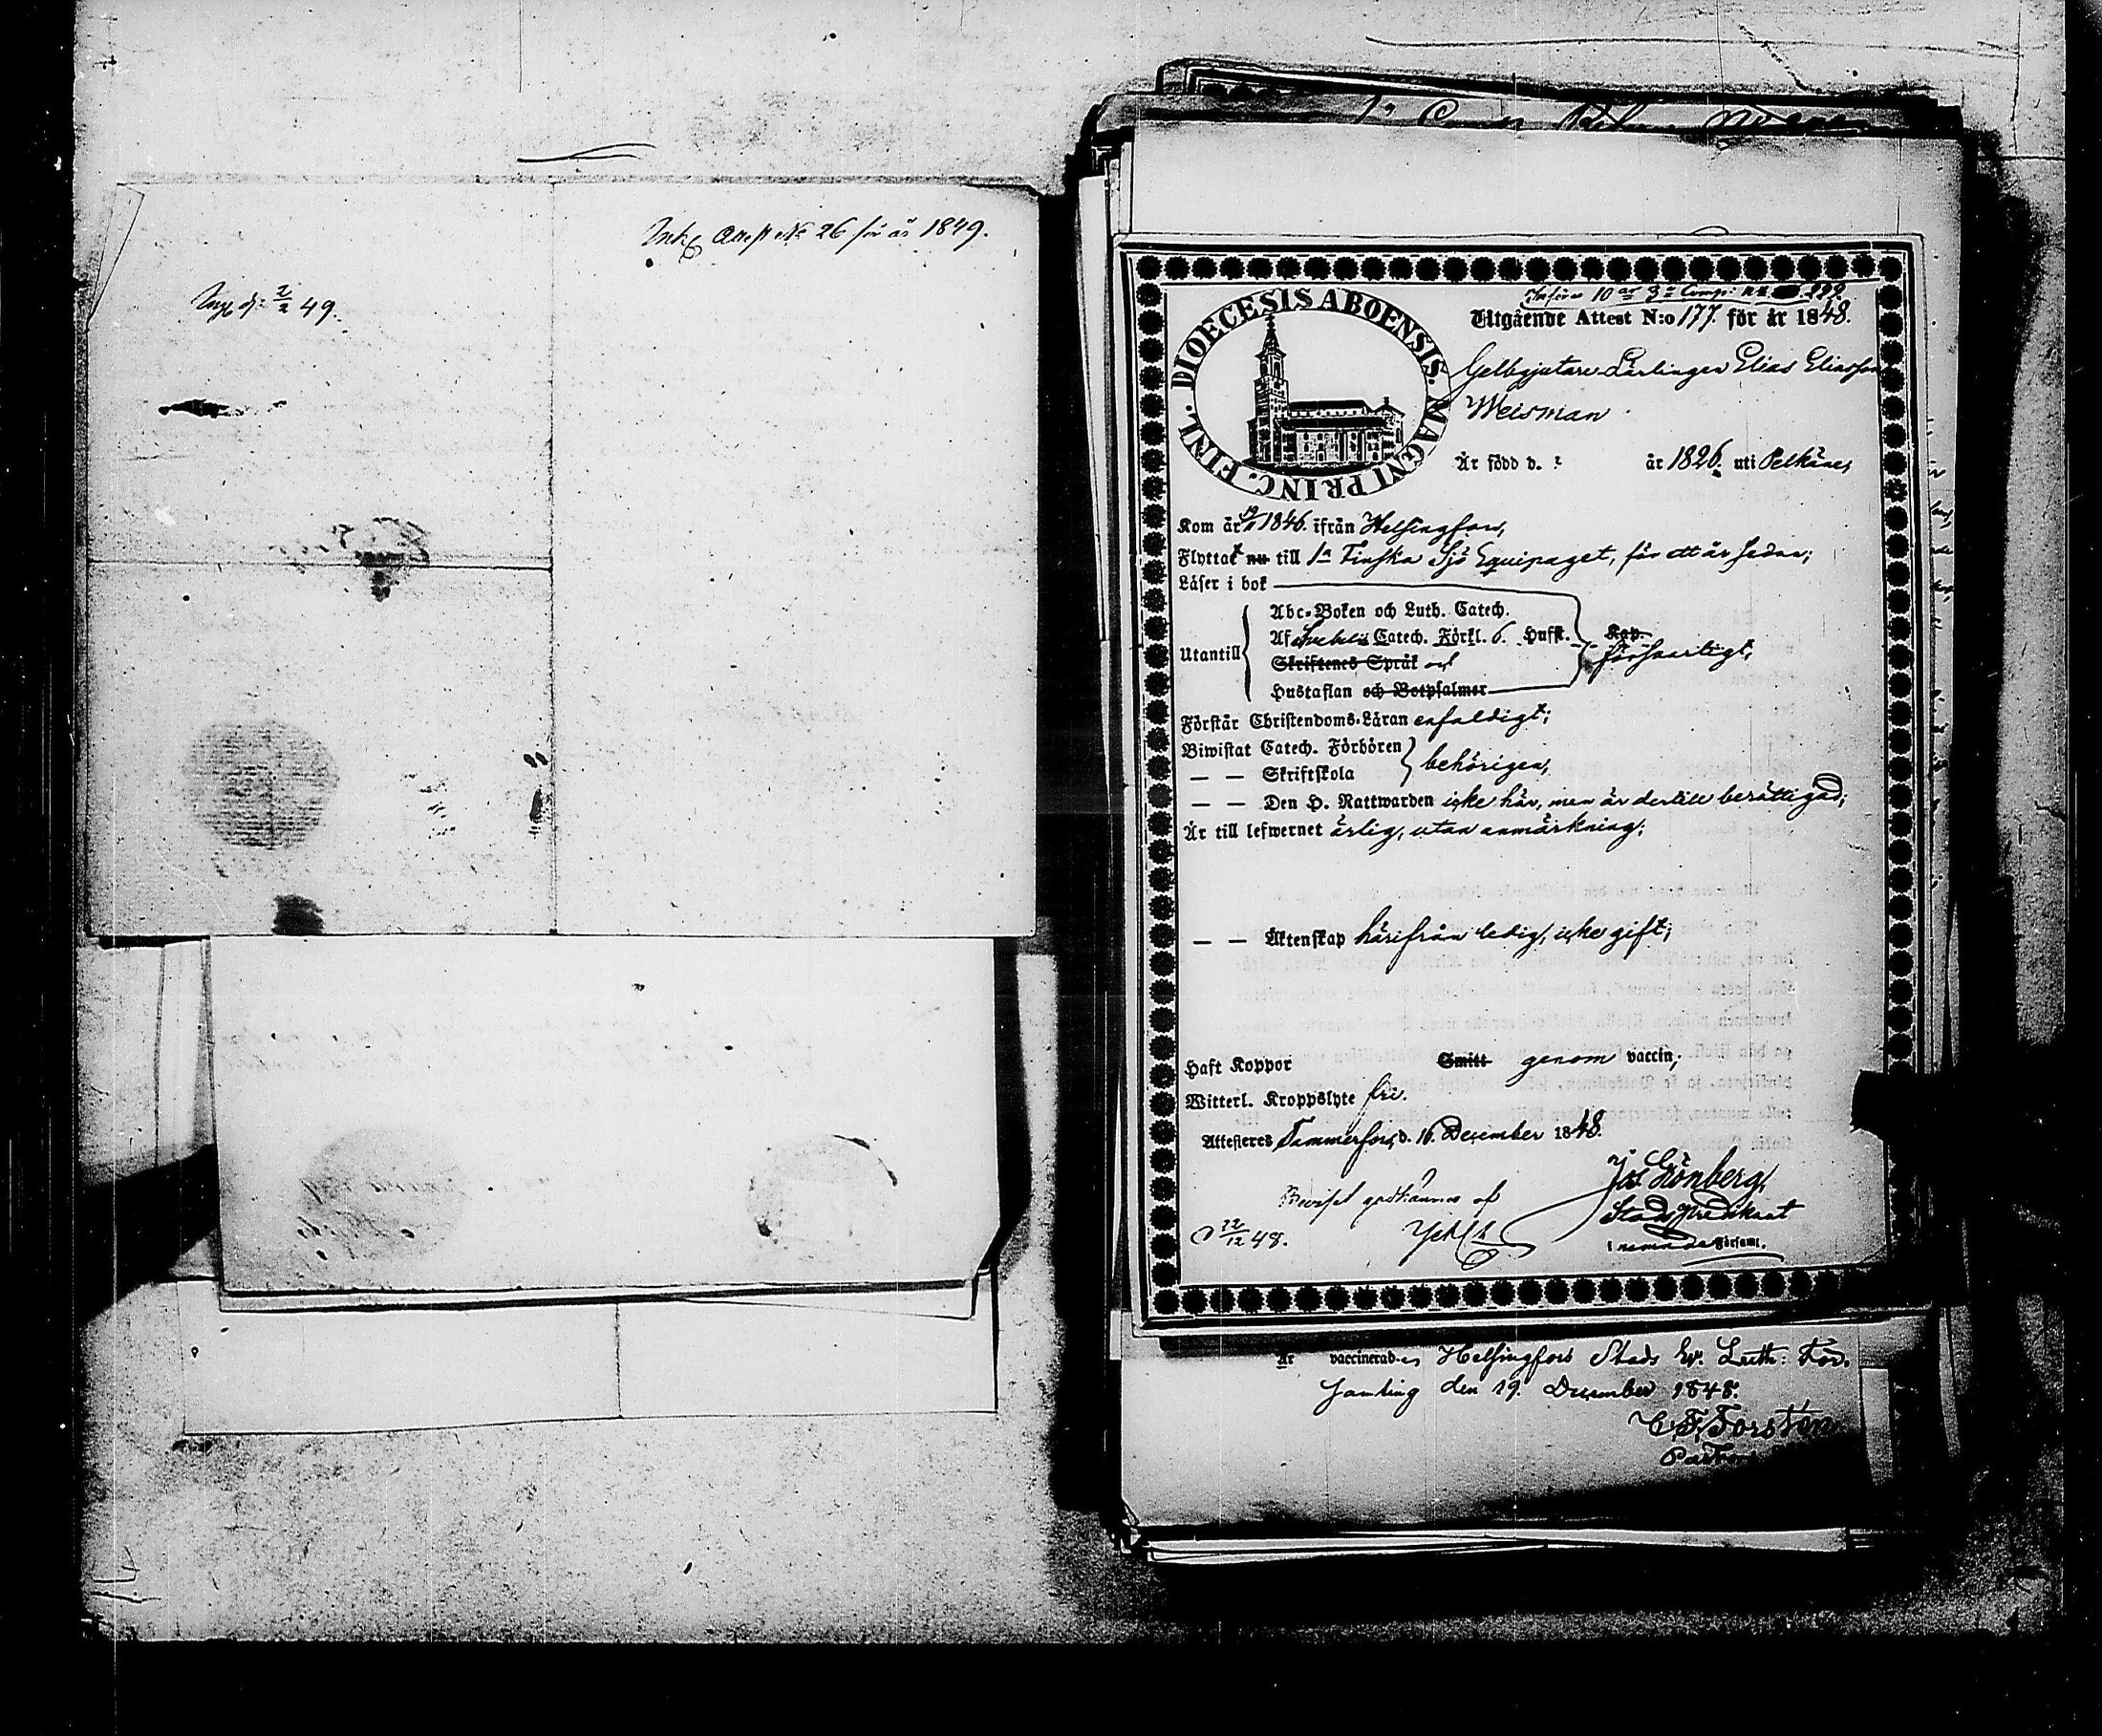 Attest No 26 för år 1849.
2/2 49.
Införes 10de 3e Comp: 299
Utgående Attest N:o 177. för år 1848.
DIOECESIS ABOENSIS. MAGNI PRINC. FINL.
Gelbgjutare-Lärlingen Elias Eliasson
Weisman
Är född d. ? år 1826. uti Pelkäne,
Kom år 1846. ifrån Helsingfors,
Flyttat nu till 1a Finska Sjö Equipaget, för ett år sedan;
Läser i bok
Abc-Boken och Luth. Catech.
Af Svebelii Catech. Förkl. 6. Hufst. Kap.
Utantill
Skriftenes Språk och
försvarligt,
Hustaflan och Botpsalmer
Förstår Christendoms-Läran enfaldigt;
Biwistat Catech. Förhören
— — Skriftskola
behörigen,
— — Den H. Nattwarden icke här, men är dertill berättigad;
Är till lefwernet ärlig, utan anmärkning;
— — Äktenskap härifrån ledig, icke gift;
Haft Koppor Smitt genom vaccin;
Witterl. Kroppslyte fri.
Attesteras Tammerfors, d. 16. December 1848.
Jos. Grönberg,
Beviset godkännes af
Stads Predikant
22/12 48.
i nemnde Församl.
Är vaccinerad. Helsingfors Stads Ev. Luth: För-
samling den 19. December 1848.
C. F. Forstén
Pastor